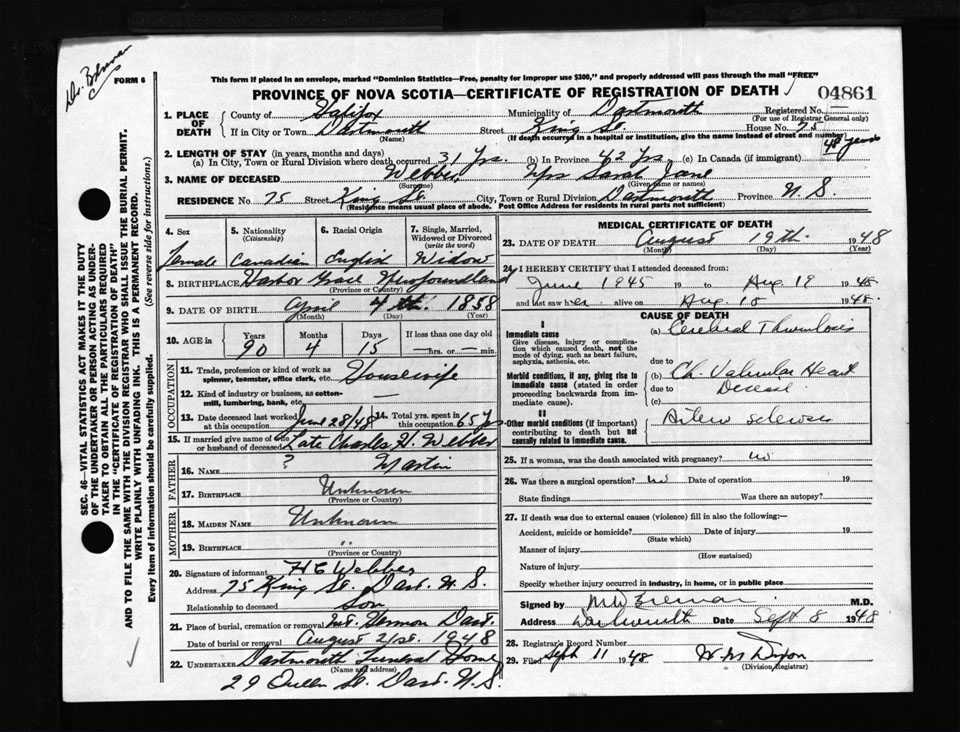 FORM 6
This form if placed in an envelope, marked "Dominion Statistics—Free, penalty for improper use $300," and properly addressed will pass through the mail "FREE"
PROVINCE OF NOVA SCOTIA—CERTIFICATE OF REGISTRATION OF DEATH
04861
1. PLACE OF DEATH
County of Halifax Municipality of Dartmouth Registered No.
(For use of Registrar General only)
If in City or Town Dartmouth Street King St. House No. 75
(Name) (If death occurred in a hospital or institution, give the name instead of street and number)
2. LENGTH OF STAY (in years, months and days) 48 years
(a) In City, Town or Rural Division where death occurred 31 Yrs. (b) In Province 42 Yrs (c) In Canada (if immigrant)
3. NAME OF DECEASED Webber, Mrs Sarah Jane
(Surname) (Given name or names)
RESIDENCE No. 75 Street King St. City, Town or Rural Division Dartmouth Province N.S.
(Residence means usual place of abode. Post Office Address for residents in rural parts not sufficient)
4. Sex 5. Nationality (Citizenship) 6. Racial Origin 7. Single, Married, Widowed or Divorced (write the word)
Female Canadian English Widow
8. BIRTHPLACE Harbor Grace Newfoundland
(Province or Country)
9. DATE OF BIRTH April 4th. 1858
(Month) (Day) (Year)
10. AGE in Years Months Days If less than one day old
90 4 15 —hrs. or — min.
OCCUPATION
11. Trade, profession or kind of work as spinner, teamster, office clerk, etc. Housewife
12. Kind of industry or business, as cotton-mill, lumbering, bank, etc. —
13. Date deceased last worked at this occupation June 28/48 14. Total yrs. spent in this occupation 65 Yrs
15. If married give name of wife or husband of deceased Late Charles H. Webber
FATHER
16. Name ? Martin
17. Birthplace Unknown
(Province or Country)
MOTHER
18. Maiden Name Unknown
19. Birthplace ..
(Province or Country)
20. Signature of informant H C Webber
Address 75 King St. Dart. N.S.
Relationship to deceased Son
21. Place of burial, cremation or removal Mt. Hermon Dart.
Date of burial or removal August 21st. 1948
22. Undertaker Dartmouth Funeral Home
(Name and address)
29 Queen St. Dart. N.S.
MEDICAL CERTIFICATE OF DEATH
23. DATE OF DEATH August 19th. 1948
(Month) (Day) (Year)
24. I HEREBY CERTIFY that I attended deceased from:
June 1945 19 to Aug 19 1948
and last saw her alive on Aug. 18 1948.
CAUSE OF DEATH
I
Immediate cause (a) Cerebral Thrombosis
Give disease, injury or complication which caused death, not the mode of dying, such as heart failure, asphyxia, asthenia, etc.
due to
Morbid conditions, if any, giving rise to immediate cause (stated in order proceeding backwards from immediate cause). (b) Ch. Valvular Heart
due to Disease
(c)
II
Other morbid conditions (if important) contributing to death but not causally related to immediate cause. Arterio sclerosis
25. If a woman, was the death associated with pregnancy? no
26. Was there a surgical operation? no Date of operation 19
State findings Was there an autopsy?
27. If death was due to external causes (violence) fill in also the following:—
Accident, suicide or homicide? Date of injury 19
(State which)
Manner of injury
(How sustained)
Nature of injury
Specify whether injury occurred in industry, in home, or in public place
Signed by M.D.
Address Dartmouth Date Sept 8 1948
28. Registrar's Record Number
29. Filed Sept 11 1948 Dixon
(Division Registrar)
SEC. 46—VITAL STATISTICS ACT MAKES IT THE DUTY OF THE UNDERTAKER OR PERSON ACTING AS UNDERTAKER TO OBTAIN ALL THE PARTICULARS REQUIRED IN THE "CERTIFICATE OF REGISTRATION OF DEATH"
AND TO FILE THE SAME WITH THE DIVISION REGISTRAR WHO SHALL ISSUE THE BURIAL PERMIT.
WRITE PLAINLY WITH UNFADING INK. THIS IS A PERMANENT RECORD.
Every item of information should be carefully supplied. (See reverse side for instructions.)